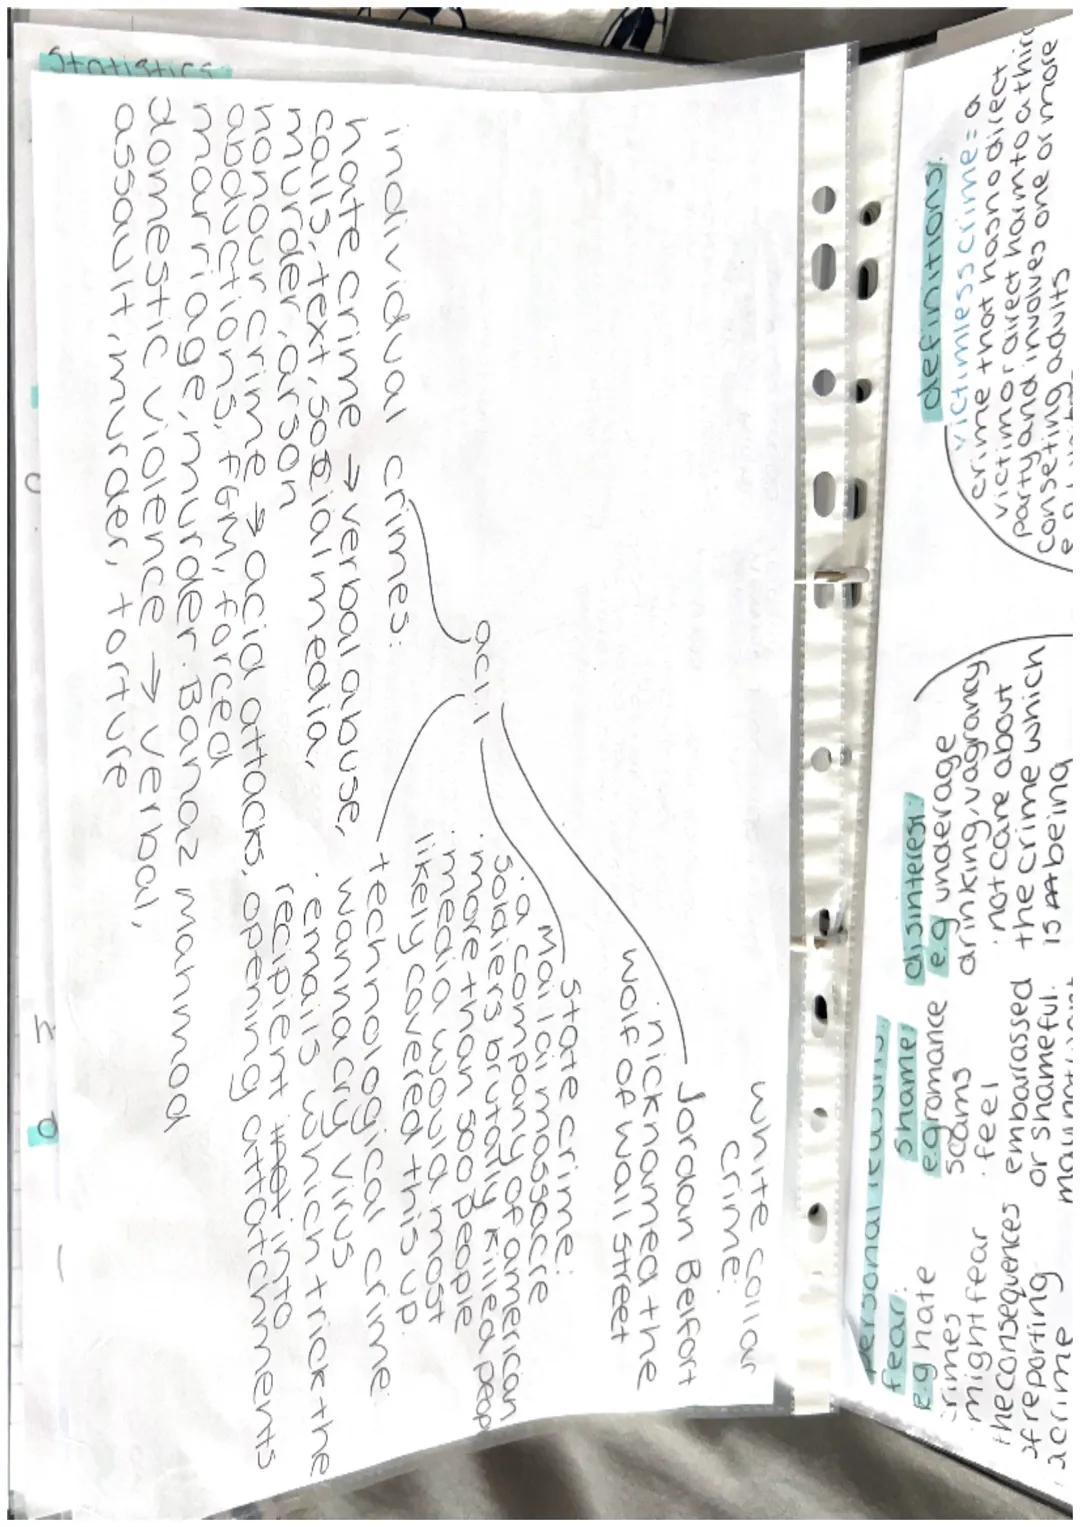 Statistics
white collar
crime:
Jordan Belfort
nicknamed the
wolf of wall street
ac1.1
State crime:
Mai Lai massacre
· a company of american
soldiers brutally killed
· more than 500 people
· media would most
likely covered this up.
technological crime:
wanna cry virus
· emails which trick the
recipient into
opening attatchments
individual crimes:
hate crime → verbal abuse,
calls, text, social media,
murder, arson
honour crime → acid attacks,
abductions, FGM, forced
marriage, murder. Banaz mahmod
domestic violence → verbal,
assault, murder, torture
definitions:
victimless crime = a
crime that has no direct
victim or direct harm to a third
party and involves one or more
conseting adults
personal reasons:
fear:
e.g hate
crimes
· might fear
the consequences
of reporting
a crime
shame:
e.g romance
scams
· feel
embarassed
or shameful.
may not want
disinterest:
e.g underage
drinking, vagrancy
· not care about
the crime which
is being